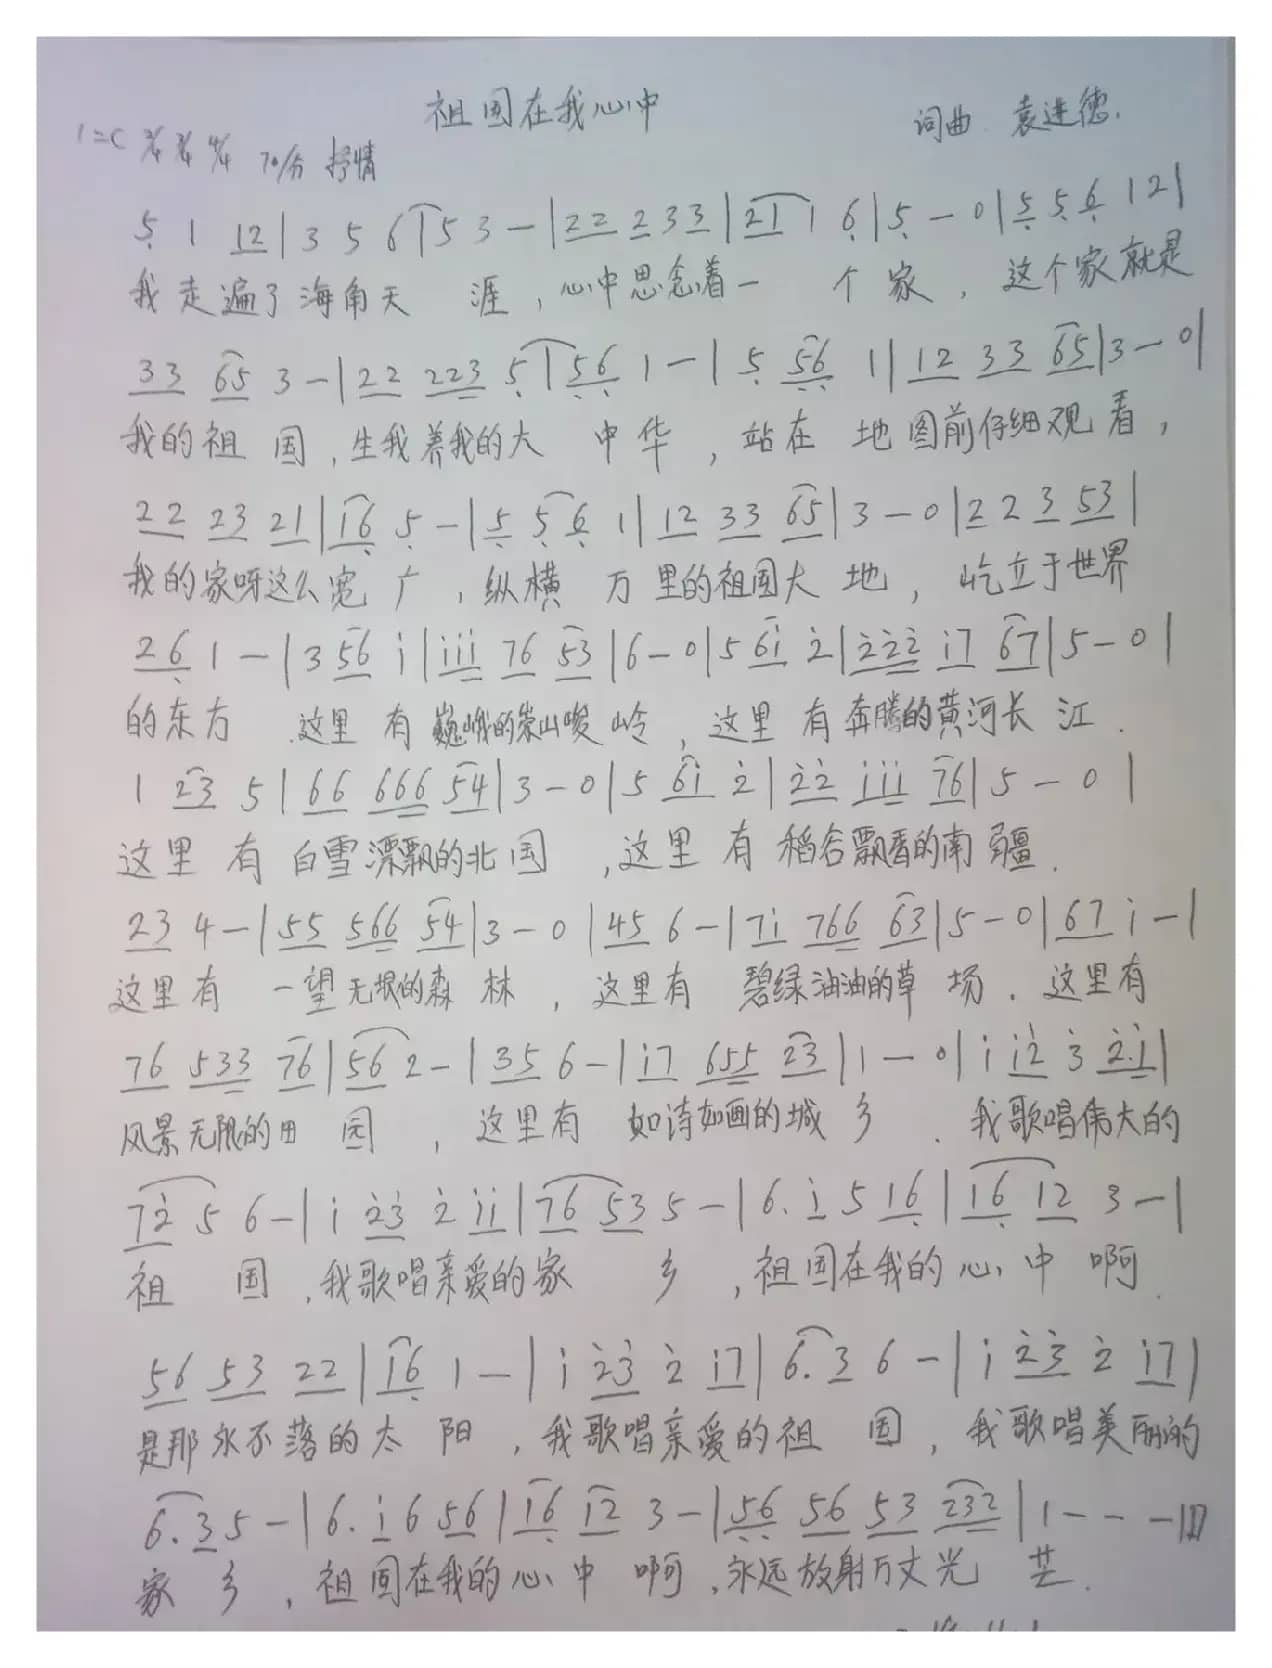 祖国在我心中
词曲 袁进德.
1=C 2/4 3/4 4/4 70/分 抒情
5 1 12|3 5 6 1 5 3 -|22 2 33|21 1 6|5 - 0|5 5 6 12|
我走遍了海角天 涯,心中思念着一 个 家,这个家就是
33 65 3 -|22 223 5 1 56 1 -|5 56 1|12 33 65|3 - 0|
我的祖 国,生我养我的大 中华,站在 地图前仔细观看,
22 23 21|16 5 -|5 5 6 1|12 33 65|3 - 0|2 2 3 53|
我的家呀这么宽 广,纵横 万里的祖国大 地,屹立于世界
26 1 -|3 56 i|iii 76 53|6 - 0|5 6i 2|222 i7 67|5 - 0|
的东方.这里 有 巍峨的崇山峻 岭,这里 有奔腾的黄河长 江.
1 23 5|66 666 54|3 - 0|5 6i 2|22 iii 76|5 - 0|
这里 有 白雪漂飘的北 国,这里 有 稻谷飘香的南 疆.
23 4 -|55 566 54|3 - 0|45 6 -|7i 766 63|5 - 0|67 i -|
这里有 一望无垠的森 林,这里有 碧绿油油的草 场.这里有
76 533 76|56 2 -|35 6 -|i7 655 23|1 - 0|i i2 3 2.i|
风景无限的田 园,这里有 如诗如画的城 乡.我歌唱伟大的
72 5 6 -|i 23 2 ii|76 53 5 -|6. i 5 16|16 12 3 -|
祖 国,我歌唱亲爱的家 乡,祖国在我的心 中 啊.
56 53 22|16 1 -|i 23 2 i7|6. 3 6 -|i 23 2 i7|
是那永不落的太 阳,我歌唱亲爱的祖 国,我歌唱美丽的
6. 3 5 -|6. i 6 56|16 12 3 -|56 56 53 232|1 - - -||
家 乡,祖国在我的心 中 啊,永远放射万丈光 芒.